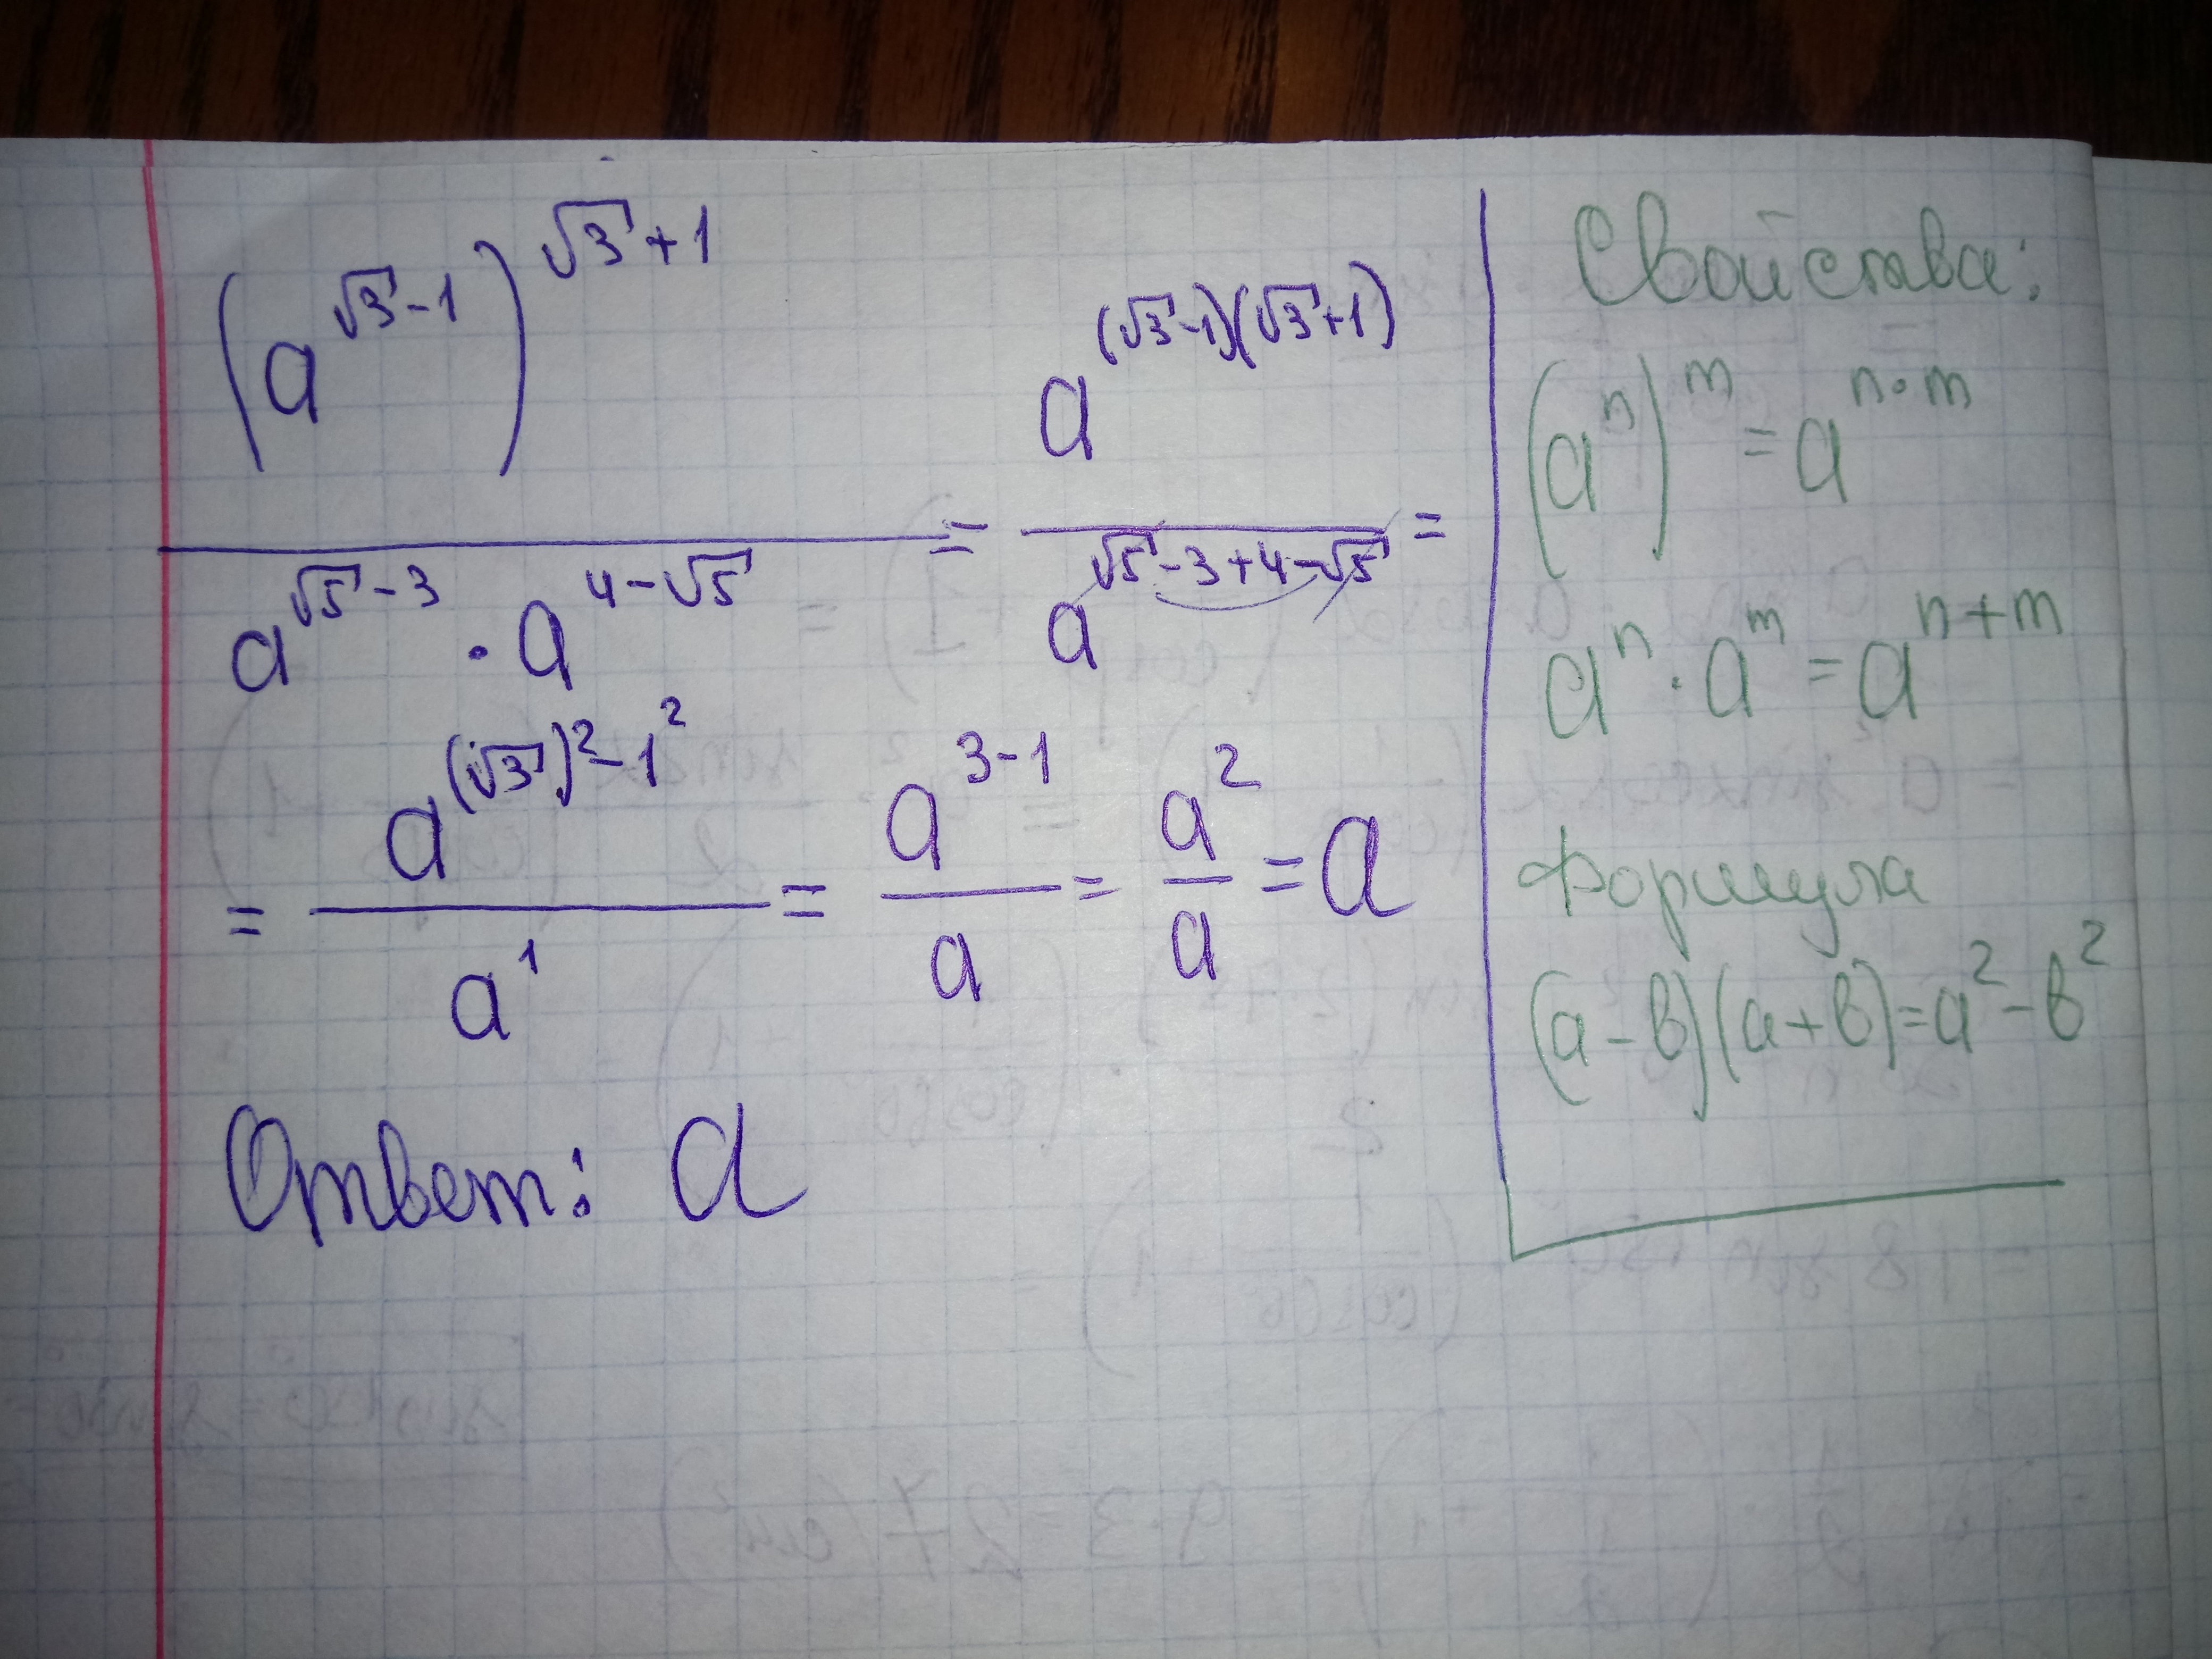 (a^(√3-1))^(√3+1) / (a^(√5-3) · a^(4-√5)) = a^((√3-1)(√3+1)) / a^(√5-3+4-√5) =
= a^((√3)²-1²) / a¹ = a^(3-1) / a = a² / a = a
Ответ: a
Свойства:
(a^n)^m = a^(n·m)
a^n · a^m = a^(n+m)
Формула
(a-в)(a+в)=a²-в²
9·3=27(см²)